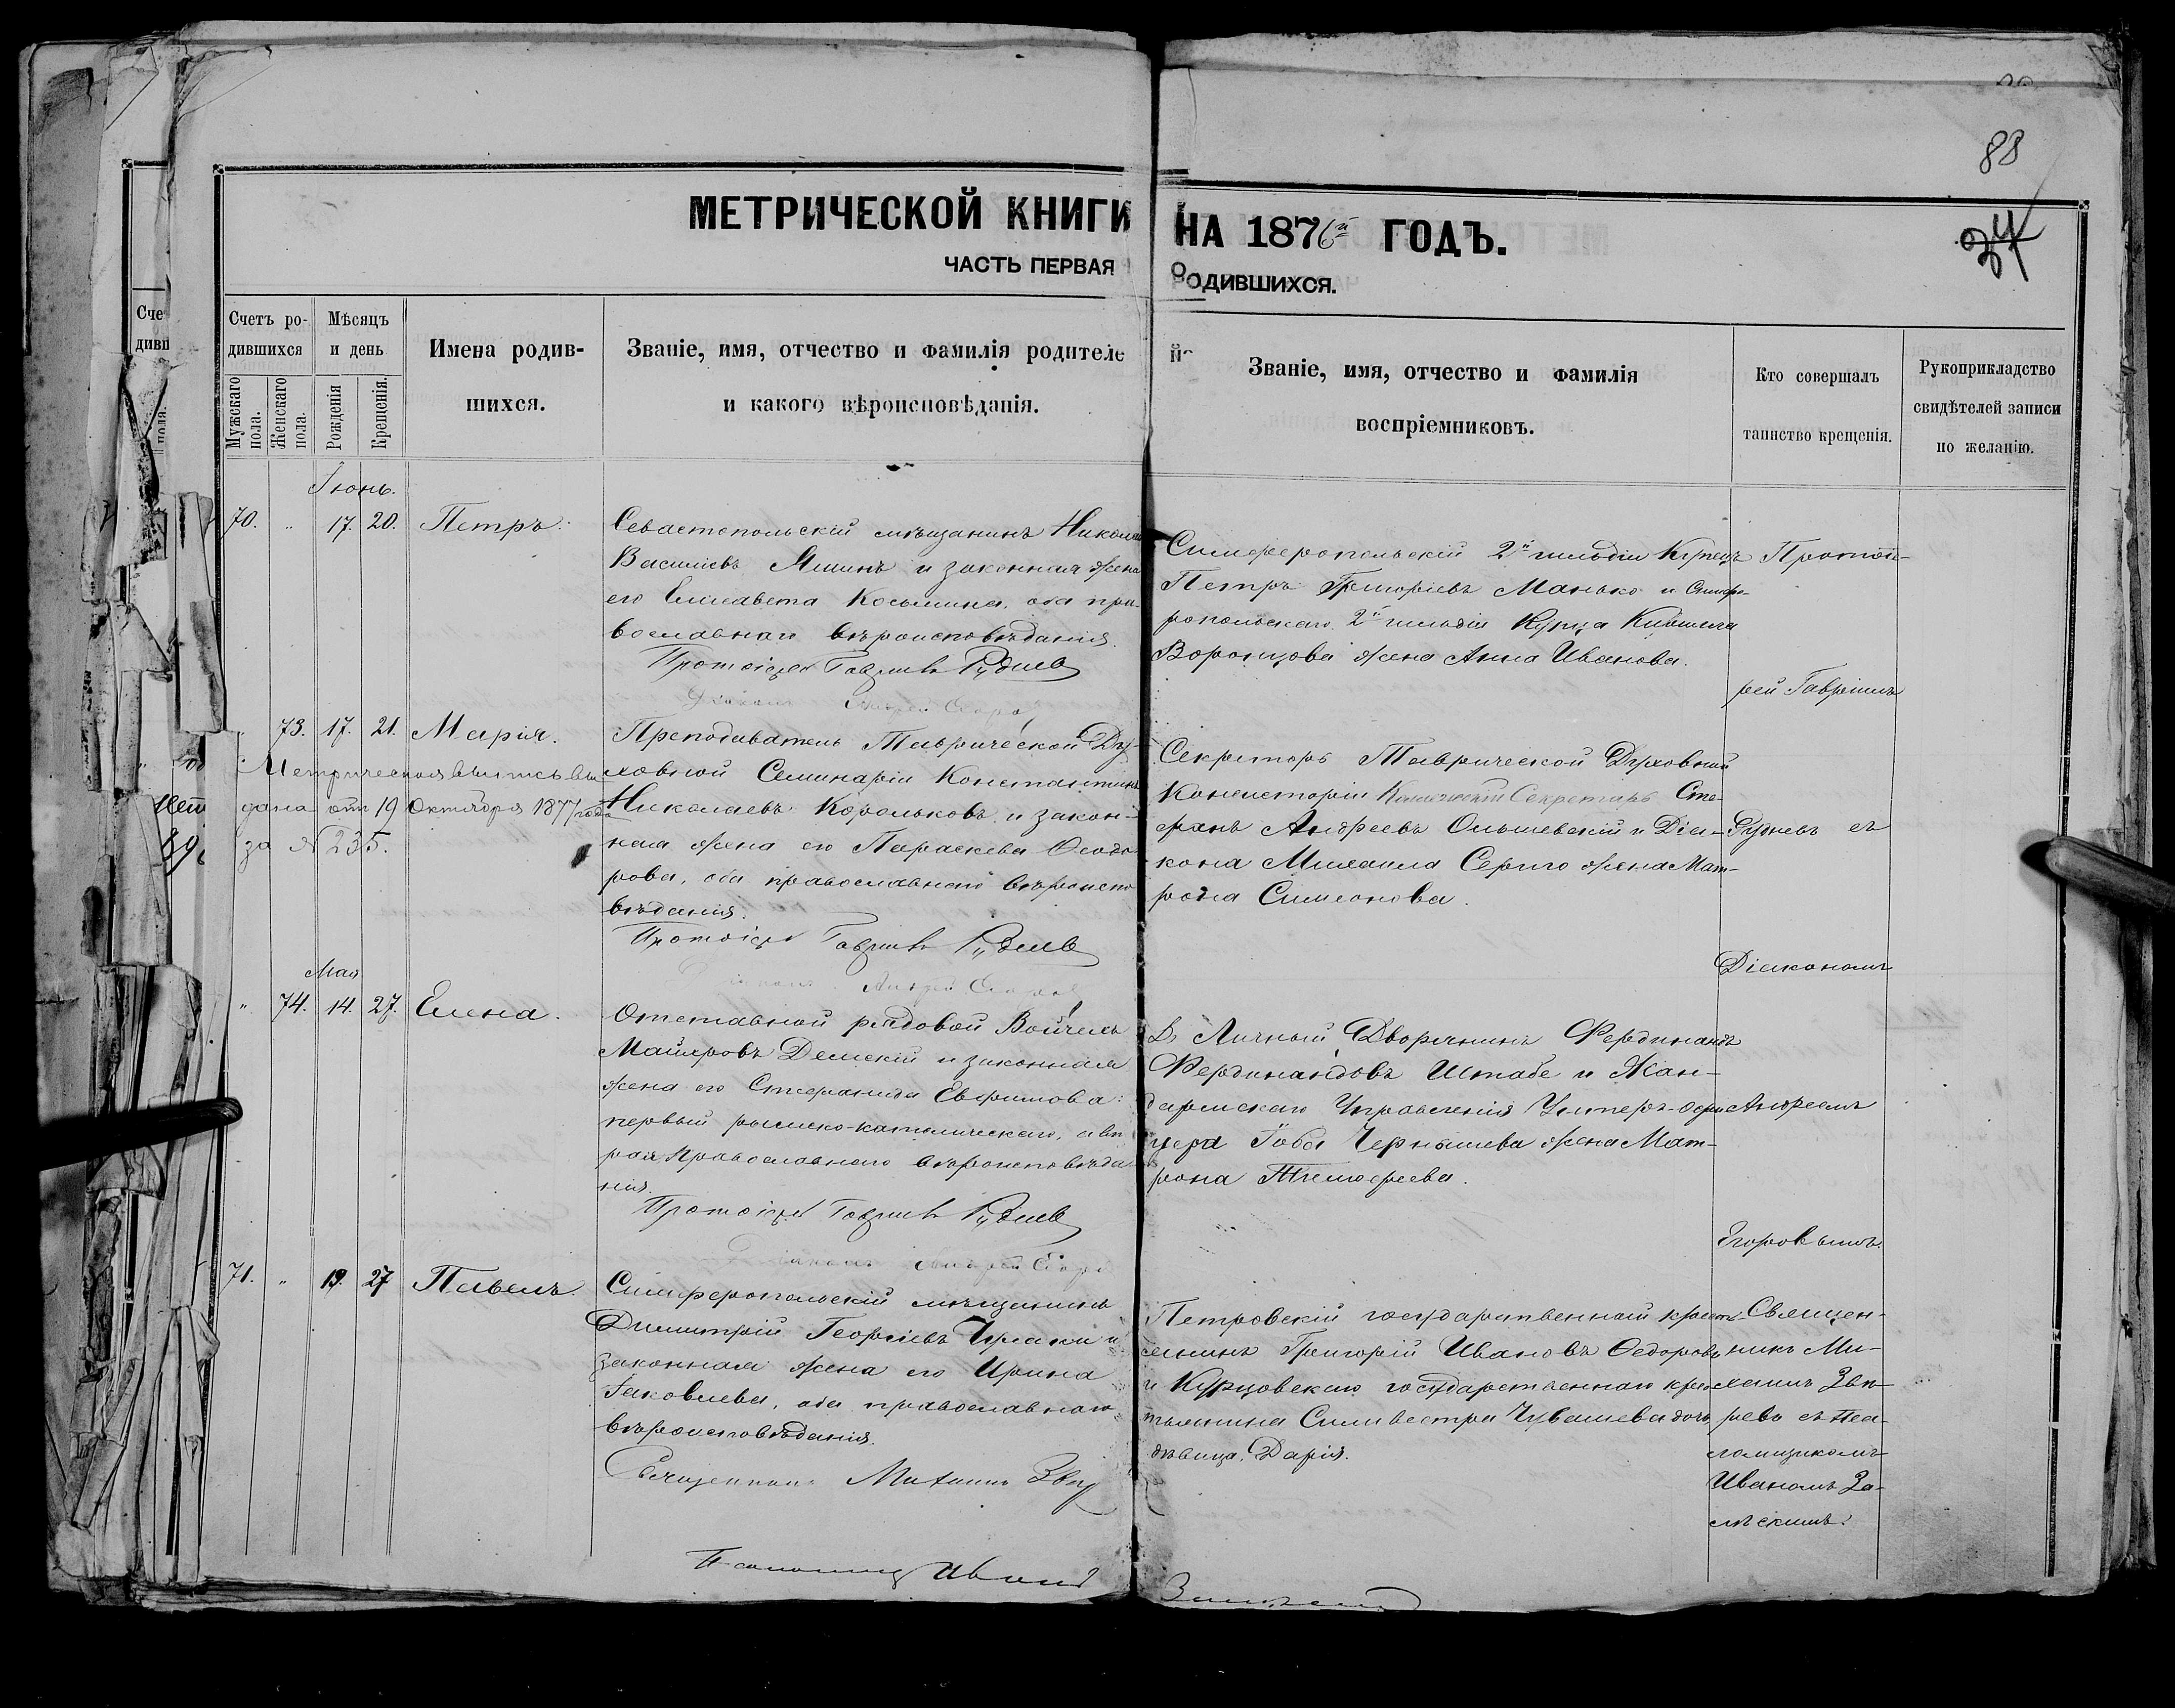 88
МЕТРИЧЕСКОЙ КНИГИ НА 1876й ГОДЪ.
34
ЧАСТЬ ПЕРВАЯ О РОДИВШИХСЯ.
Счетъ ро-
дившихся
Мужскаго пола.
Женскаго пола.
Мѣсяцъ
и день
Рожденія
Крещенія.
Имена родив-
шихся.
Званіе, имя, отчество и фамилія родителей
и какого вѣроисповѣданія.
Званіе, имя, отчество и фамилія
воспріемниковъ.
Кто совершалъ
таинство крещенія.
Рукоприкладство
свидѣтелей записи
по желанію.
Іюнь.
70. " 17. 20. Петръ.
Севастопольскій мѣщанинъ Николай
Васильевъ Яшинъ и законная жена
его Елисавета Косьмина, оба пра-
вославнаго вѣроисповѣданія.
Протоіерей Гавріилъ Рудневъ
Діаконъ Андрей Егоровъ
Симферопольскій 2й гильдіи Купецъ
Петръ Григорьевъ Манько и Симфе-
ропольскаго 2й гильдіи Купца
Воронцова жена Анна Иванова.
Протоіе-
рей Гавріилъ
" 73. 17. 21. Марія.
Метрическая выпись вы-
дана отъ 19 Октября 1877 года
за № 235.
Преподаватель Таврической Ду-
ховной Семинаріи Константинъ
Николаевъ Корольковъ и закон-
ная жена его Параскева Ѳеодо-
рова, оба православнаго вѣроиспо-
вѣданія.
Протоіерей Гавріилъ Рудневъ
Діаконъ Андрей Егоровъ
Секретарь Таврической Духовной
Консисторіи Коллежскій Секретарь Сте-
фанъ Андреевъ Ольшевскій и Діа-
кона Михаила Серіго жена Мат-
рона Симеонова.
Рудневъ съ
Діакономъ
Мая
" 74. 14. 27. Елена.
Отставной рядовой Войчехъ
Демскій и законная
жена его Стефанида Евфимова:
первый римско-католическаго, а вто-
рая Православнаго вѣроисповѣда-
нія.
Протоіерей Гавріилъ Рудневъ
Діаконъ Андрей Егоровъ
Личный Дворянинъ Фердинандъ
Фердинандовъ Штабе и Жан-
дармскаго Управленія Унтеръ-офи-
цера Чернышева жена Мат-
рона Тимофеева.
Андреемъ
Егоровымъ.
71. " 19. 27 Павелъ.
Симферопольскій мѣщанинъ
Димитрій Георгіевъ и
законная жена его Ирина
Іаковлева, оба православнаго
вѣроисповѣданія.
Священникъ Михаилъ
Псаломщикъ Иванъ
Петровскій государственный кресть-
янинъ Григорій Ивановъ Ѳедоровъ
и Курцовскаго государственнаго крес-
тьянина Сильвестра Чувашева дочь
дѣвица, Дарія.
Священ-
никъ Ми-
хаилъ Звѣ-
ревъ съ Пса-
ломщикомъ
Иваномъ За-
лѣскимъ.